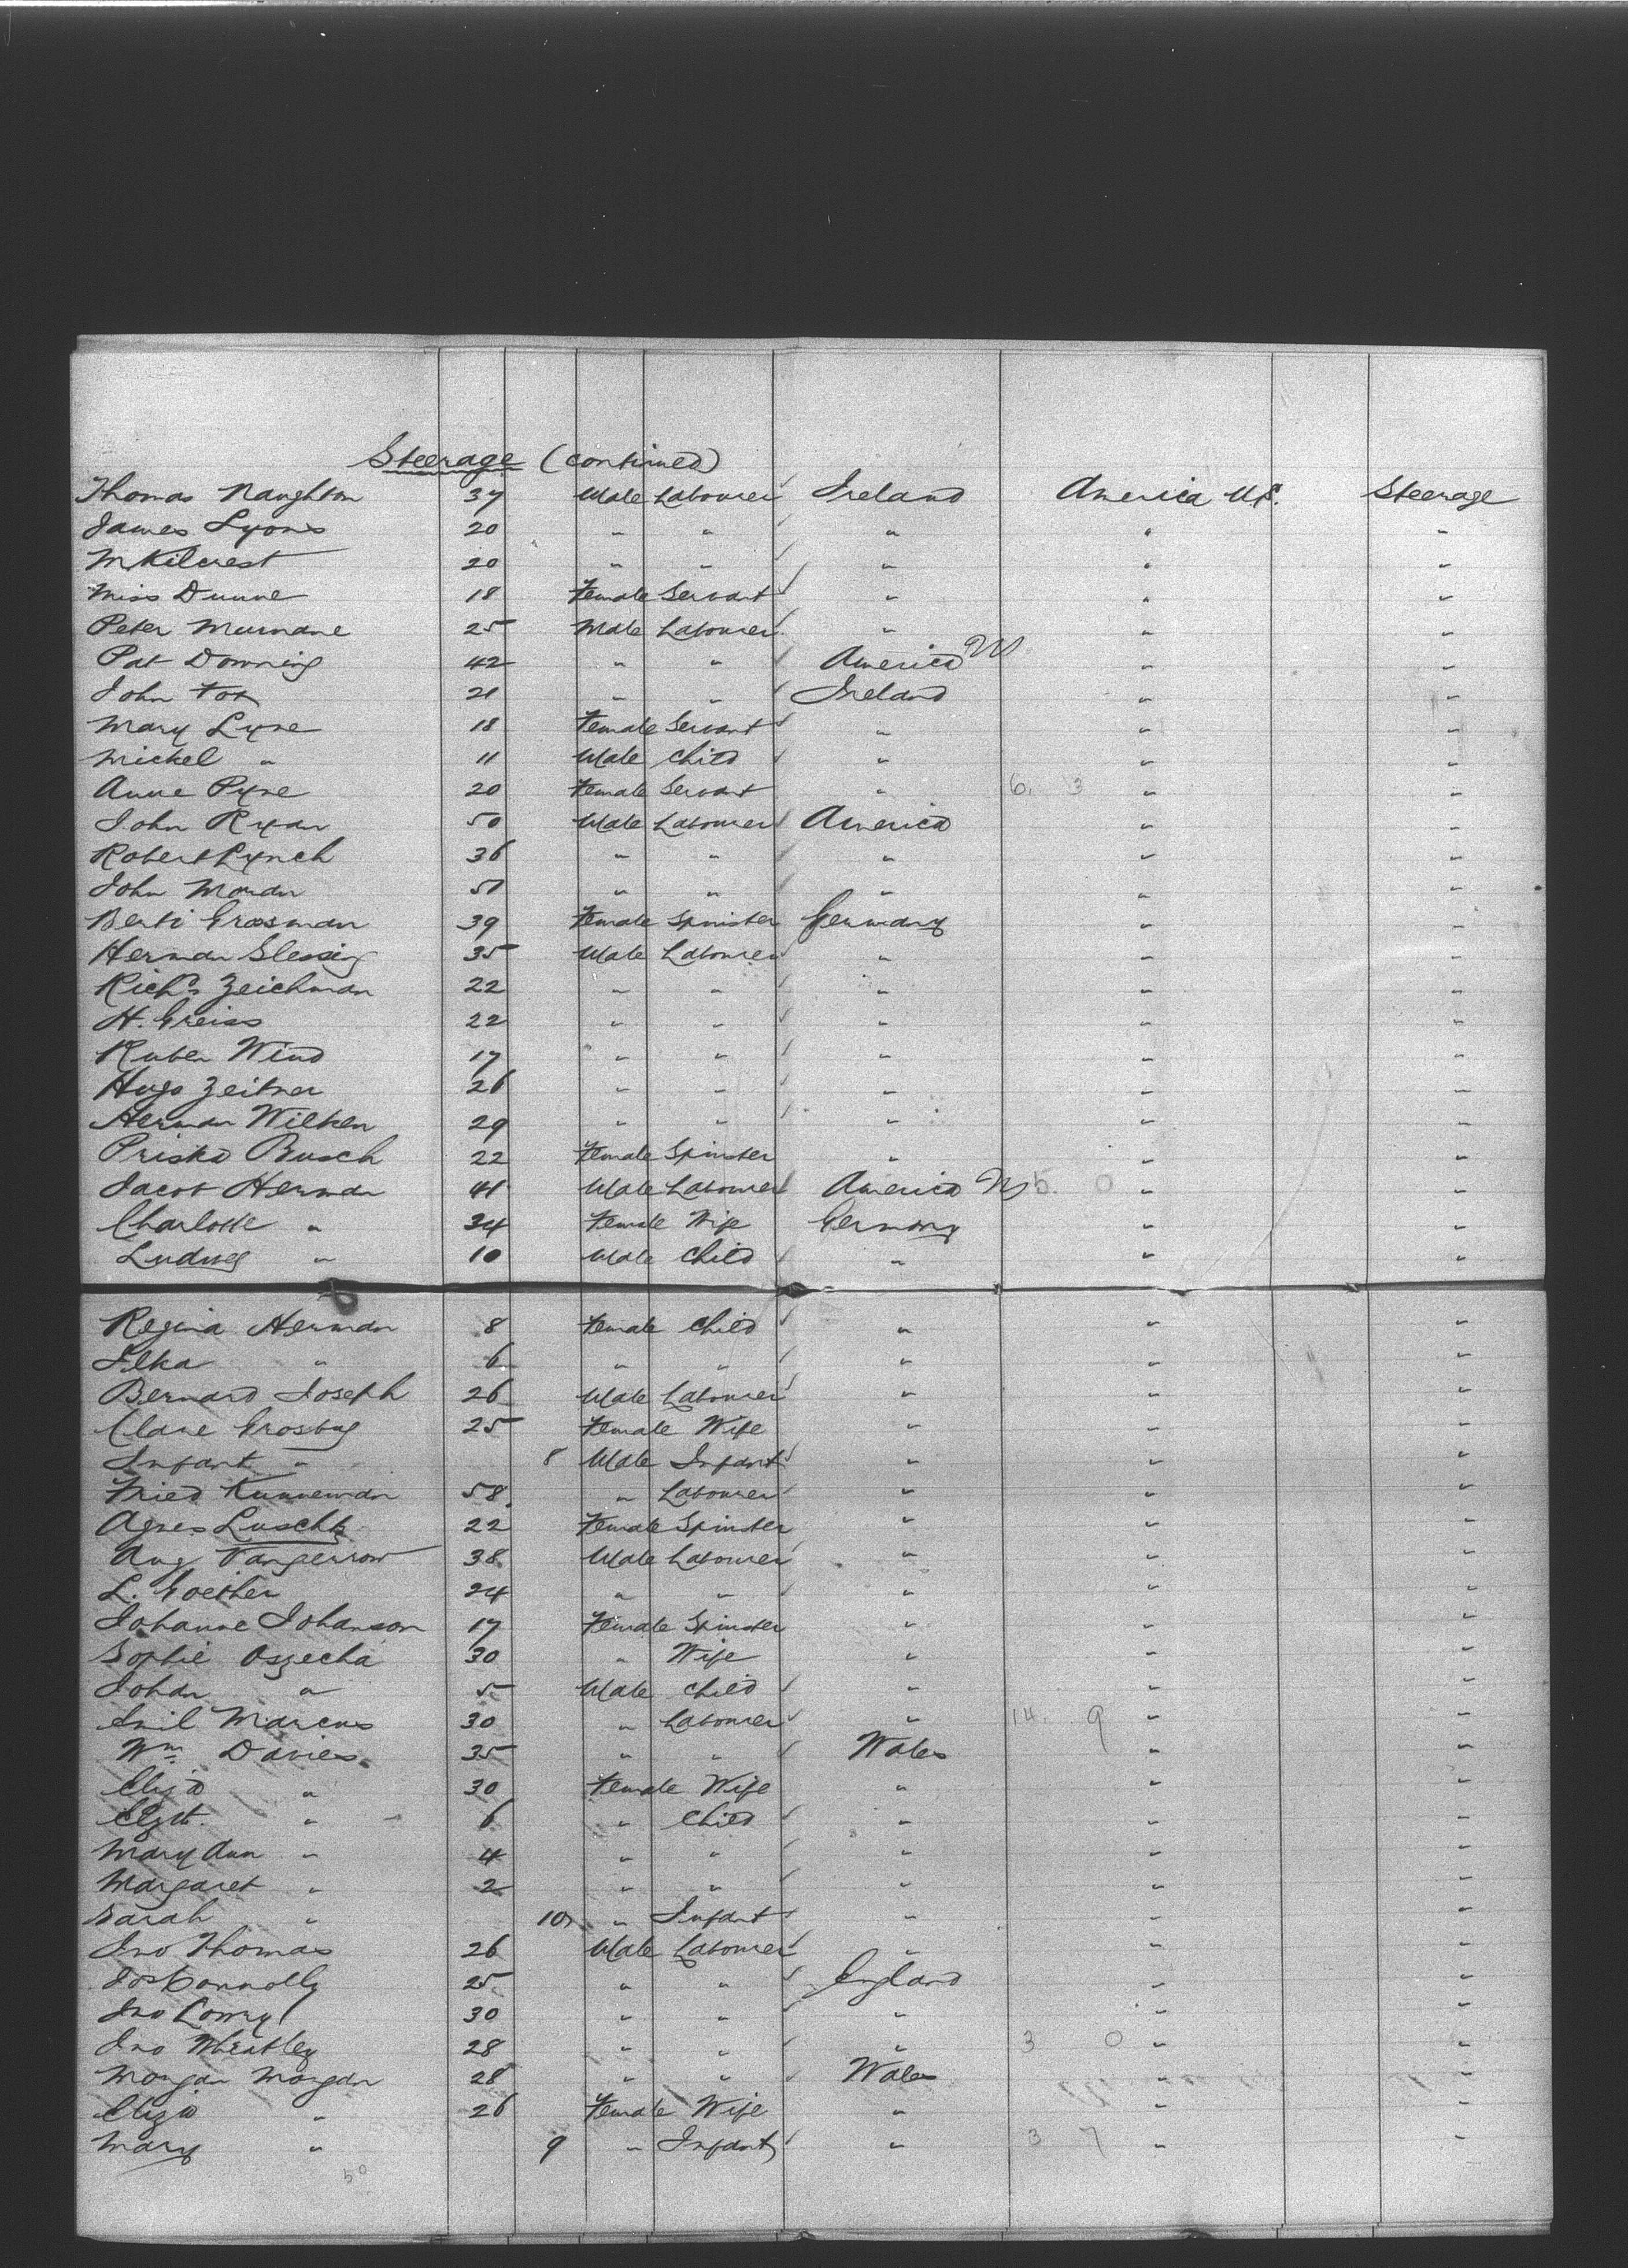 Steerage (continued)
Thomas Naughton 37 Male Labourer Ireland America U.S. Steerage
James Lyons 20 " " " " "
M Kilcrest 20 " " " " "
Miss Dunne 18 Female Servant " " "
Peter Murnane 25 Male Labourer " " "
Pat Downing 42 " " America " "
John Fox 21 " " Ireland " "
Mary Lyne 18 Female Servant " " "
Mickel " 11 Male Child " " "
Anne Pyne 20 Female Servant " 6. 3 " "
John Ryan 50 Male Labourer America " "
Robert Lynch 36 " " " " "
John Moran 51 " " " " "
Berti Grosman 39 Female Spinster Germany " "
Herman 35 Male Labourer " " "
Richd Zeichman 22 " " " " "
H. Greiss 22 " " " " "
Ruben Wind 17 " " " " "
Hugo Zeitner 26 " " " " "
Herman Wilken 29 " " " " "
Priska Busch 22 Female Spinster " " "
Jacob Herman 41 Male Labourer America 5. 0 " "
Charlotte " 34 Female Wife Germany " "
Ludwig " 10 Male Child " " "
Regina Herman 8 Female Child " " "
Ilka " 6 " " " " "
Bernard Joseph 26 Male Labourer " " "
Clare 25 Female Wife " " "
Infant " 8 Male Infant " " "
Fried Kunneman 58 " Labourer " " "
Agnes 22 Female Spinster " " "
Aug Vangerrow 38 Male Labourer " " "
L. Goether 24 " " " " "
Johanne Johanson 17 Female Spinster " " "
Sophie Oszecha 30 " Wife " " "
Johan " 5 Male Child " " "
Emil Marcus 30 " Labourer " 14. 9 " "
Wm Davies 35 " " Wales " "
Eliza " 30 Female Wife " " "
Elizth. " 6 " Child " " "
Mary Ann " 4 " " " " "
Margaret " 2 " " " " "
Sarah " 10 " Infant " " "
Jno Thomas 26 Male Labourer " " "
Jos Connolly 25 " " England " "
Jno Lowry 30 " " " " "
Jno Wheatley 28 " " " 3 0 " "
Morgan Morgan 28 " " Wales " "
Eliza " 26 Female Wife " " "
Mary " 9 " Infant " 3 7 " "
50